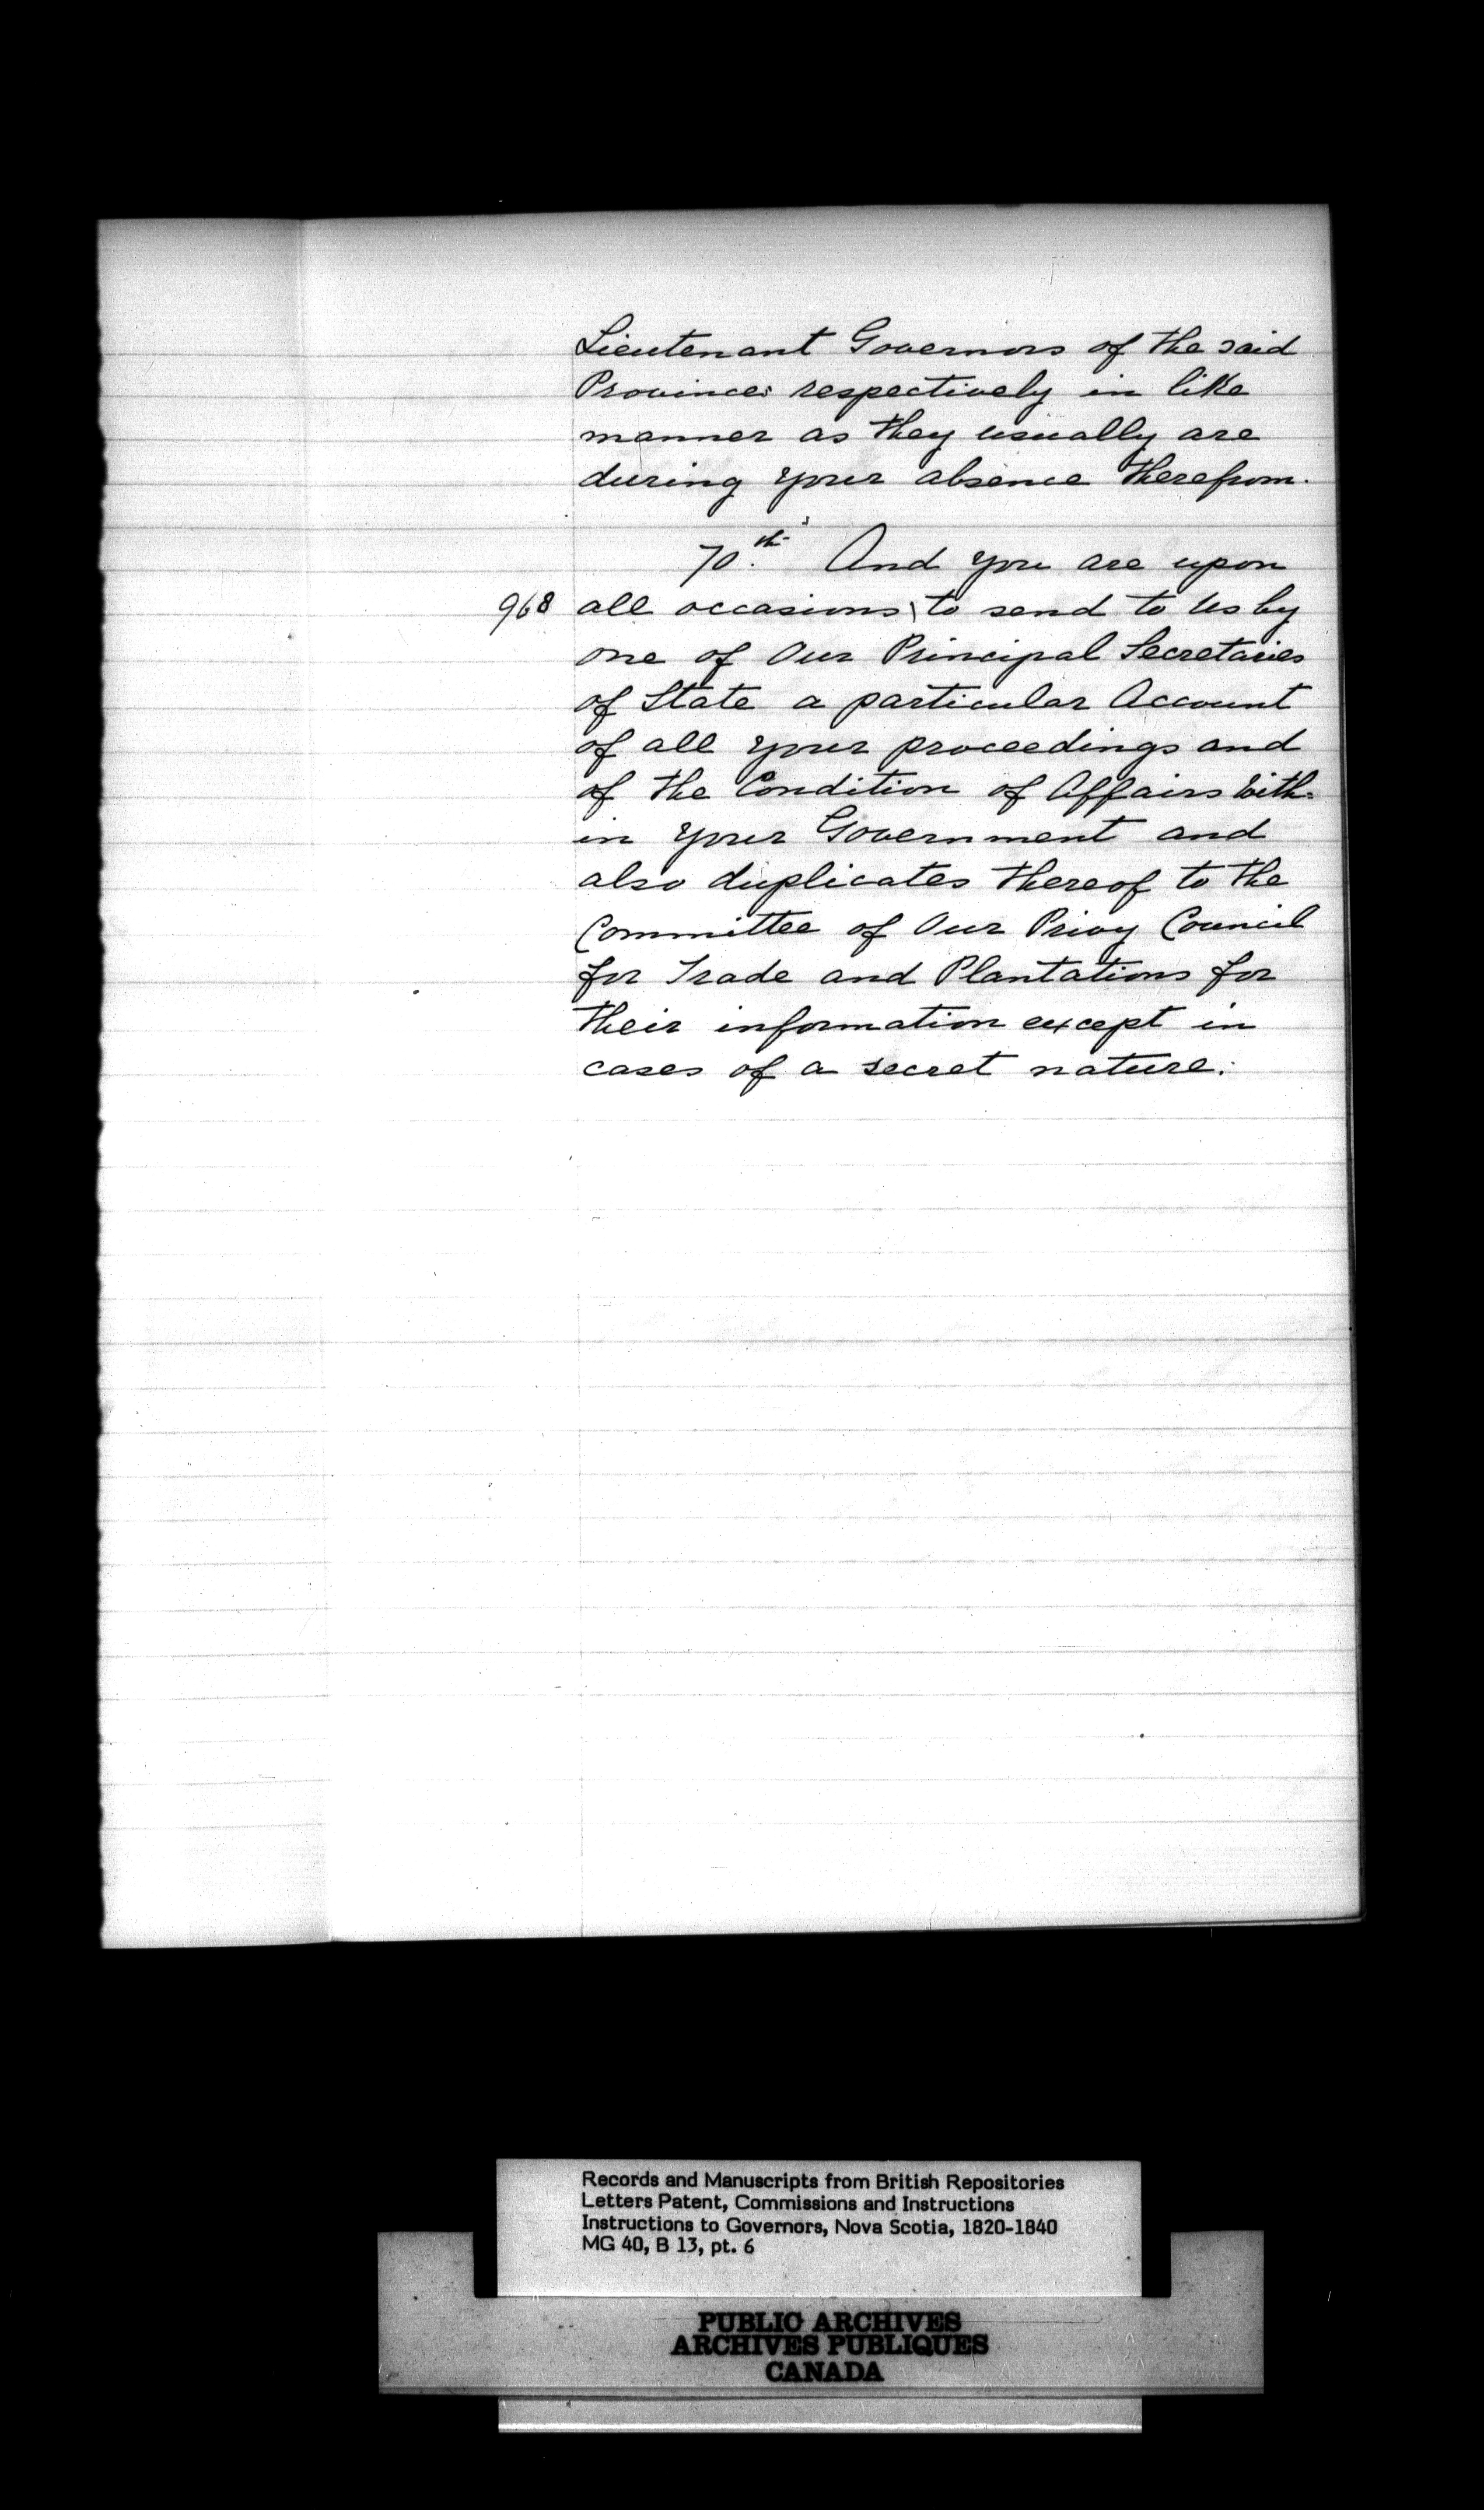 Lieutenant Governors of the said
Provinces respectively in like
manner as they usually are
during your absence therefrom.
70.th And you are upon
968 all occasions \ to send to Us by
one of Our Principal Secretaries
of State a particular Account
of all your proceedings and
of the Condition of Affairs With=
in your Government and
also duplicates thereof to the
Committee of Our Privy Council
for Trade and Plantations for
their information except in
cases of a secret nature.
Records and Manuscripts from British Repositories
Letters Patent, Commissions and Instructions
Instructions to Governors, Nova Scotia, 1820-1840
MG 40, B 13, pt. 6
PUBLIC ARCHIVES
ARCHIVES PUBLIQUES
CANADA